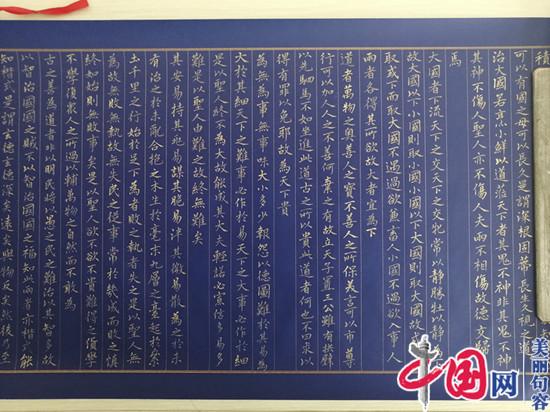 積
可以有國有國之母可以長久是謂深根固蒂長生久視之道
治大國若烹小鮮以道莅天下者其鬼不神非其鬼不神
其神不傷人聖人亦不傷人夫兩不相傷故德交歸
焉
大國者下流天下之交天下之交牝常以靜勝牡以靜
故大國以下小國則取小國小國以下大國則取大國故或下以
取或下而取大國不過欲兼畜人小國不過欲入事人
兩者各得其所欲故大者宜為下
道者萬物之奧善人之寶不善人之所保美言可以市尊
行可加人人之不善何棄之有故立天子置三公雖有拱璧
以先駟馬不如坐進此道古之所以貴此道者何也不曰求以
得有罪以免耶故為天下貴
為無為事無事味大小多少報怨以德圖難於其易為
大於其細天下之難事必作於易天下之大事必作於細
是以聖人終不為大故能成其大夫輕諾必寡信多易多
難是以聖人由難之故終無難矣
其安易持其未兆易謀其脆易泮其微易散為之於未
有治之於未亂合抱之木生於毫末九層之臺起於累
土千里之行始於足下為者敗之執者失之是以聖人無
為故無敗無執故無失民之從事常於幾成而敗之慎
終如始則無敗事矣是以聖人欲不欲不貴難得之貨學
不學復眾人之所過以輔萬物之自然而不敢為
古之善為道者非以明民將以愚之民之難治以其智多故
以智治國國之賊不以智治國國之福知此兩者亦楷式能
知楷式是謂玄德玄德深矣遠矣與物反矣然後乃至
中国网
china.com.cn
美丽句容